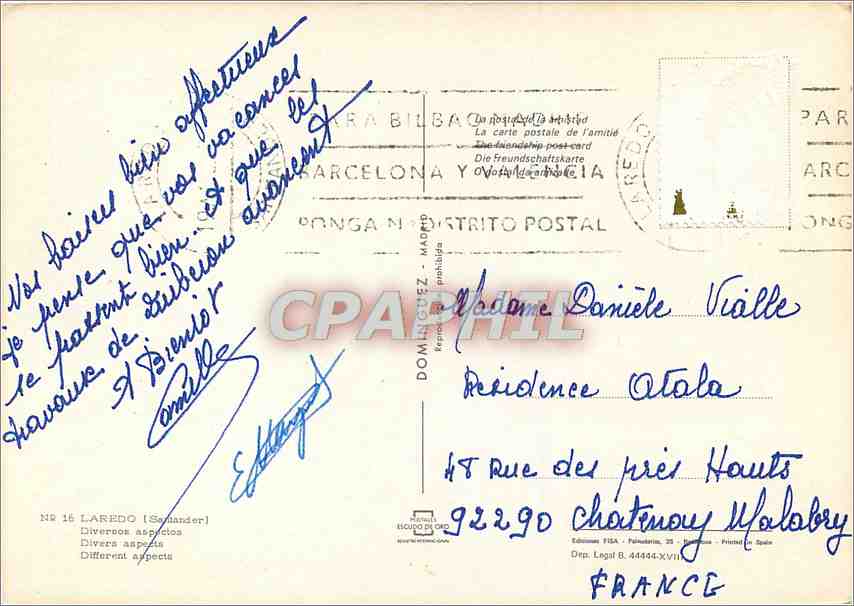 Nos baises bien affectueux
je pense que vos vacances
se passent bien. et que les
travaux de avancent
A Bientot
Camille
Nº 16 LAREDO (Santander)
Diversos aspectos
Divers aspects
Different aspects
PARA BILBAO
BARCELONA Y VALENCIA
PONGA DISTRITO POSTAL
LAREDO
PAR
ARC
ONG
La postal de la amistad
La carte postale de l'amitié
The friendship post card
Die Freundschaftskarte
CPAPHIL
DOMINGUEZ - MADRID
prohibida
POSTALES
ESCUDO DE ORO
Madame Danièle Vialle
Résidence Atala
48 Rue des près Hauts
92290 Chatenay Malabry
Ediciones FISA - Palaudarias, 26 - Barcelona - Printed in Spain
Dep. Legal B. 44444-XVII
FRANCE